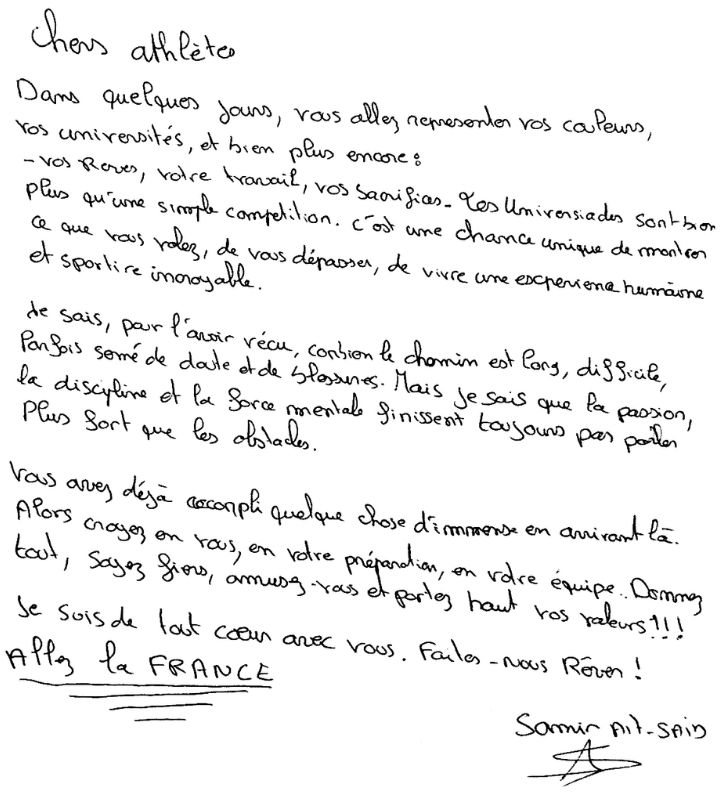 Chers athlètes
Dans quelques jours, vous allez representer vos couleurs,
vos universités, et bien plus encore :
- vos Reves, votre travail, vos sacrifices. Les Universiades sont bien
plus qu'une simple competition. C'est une chance unique de montrer
ce que vous valez, de vous dépasser, de vivre une experience humaine
et sportive incroyable.
Je sais, pour l'avoir vécu, combien le chemin est long, difficile,
Parfois semé de doute et de blessures. Mais je sais que la passion,
la discipline et la force mentale finissent toujours par parler
Plus fort que les obstacles.
Vous avez déjà accompli quelque chose d'immense en arrivant là.
Alors croyez en vous, en votre préparation, en votre équipe. Donnez
tout, Soyez fiers, amusez-vous et portez haut vos valeurs !!!
Je suis de tout cœur avec vous. Faites-nous Rêver !
Allez la FRANCE
Samir Ait-SAID